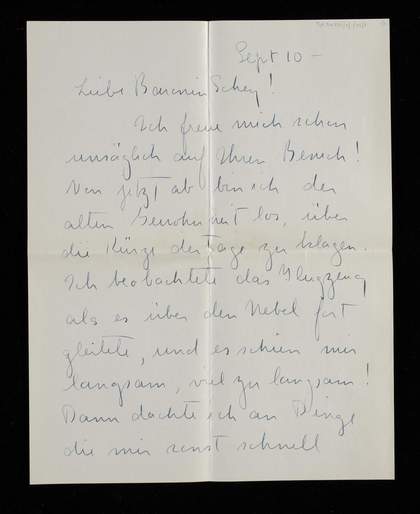 Sept 10 –
Liebe Baronin Schey!
Ich freue mich schon
unsäglich auf Ihren Besuch!
Von jetzt ab bin ich der
alten Gewohnheit los, über
die Kürze der Tage zu klagen.
Ich beobachtete das Flugzeug
als es über den Nebel fort
gleitete, und es schien mir
langsam, viel zu langsam!
Dann dachte ich an Dinge
die mir sonst schnell